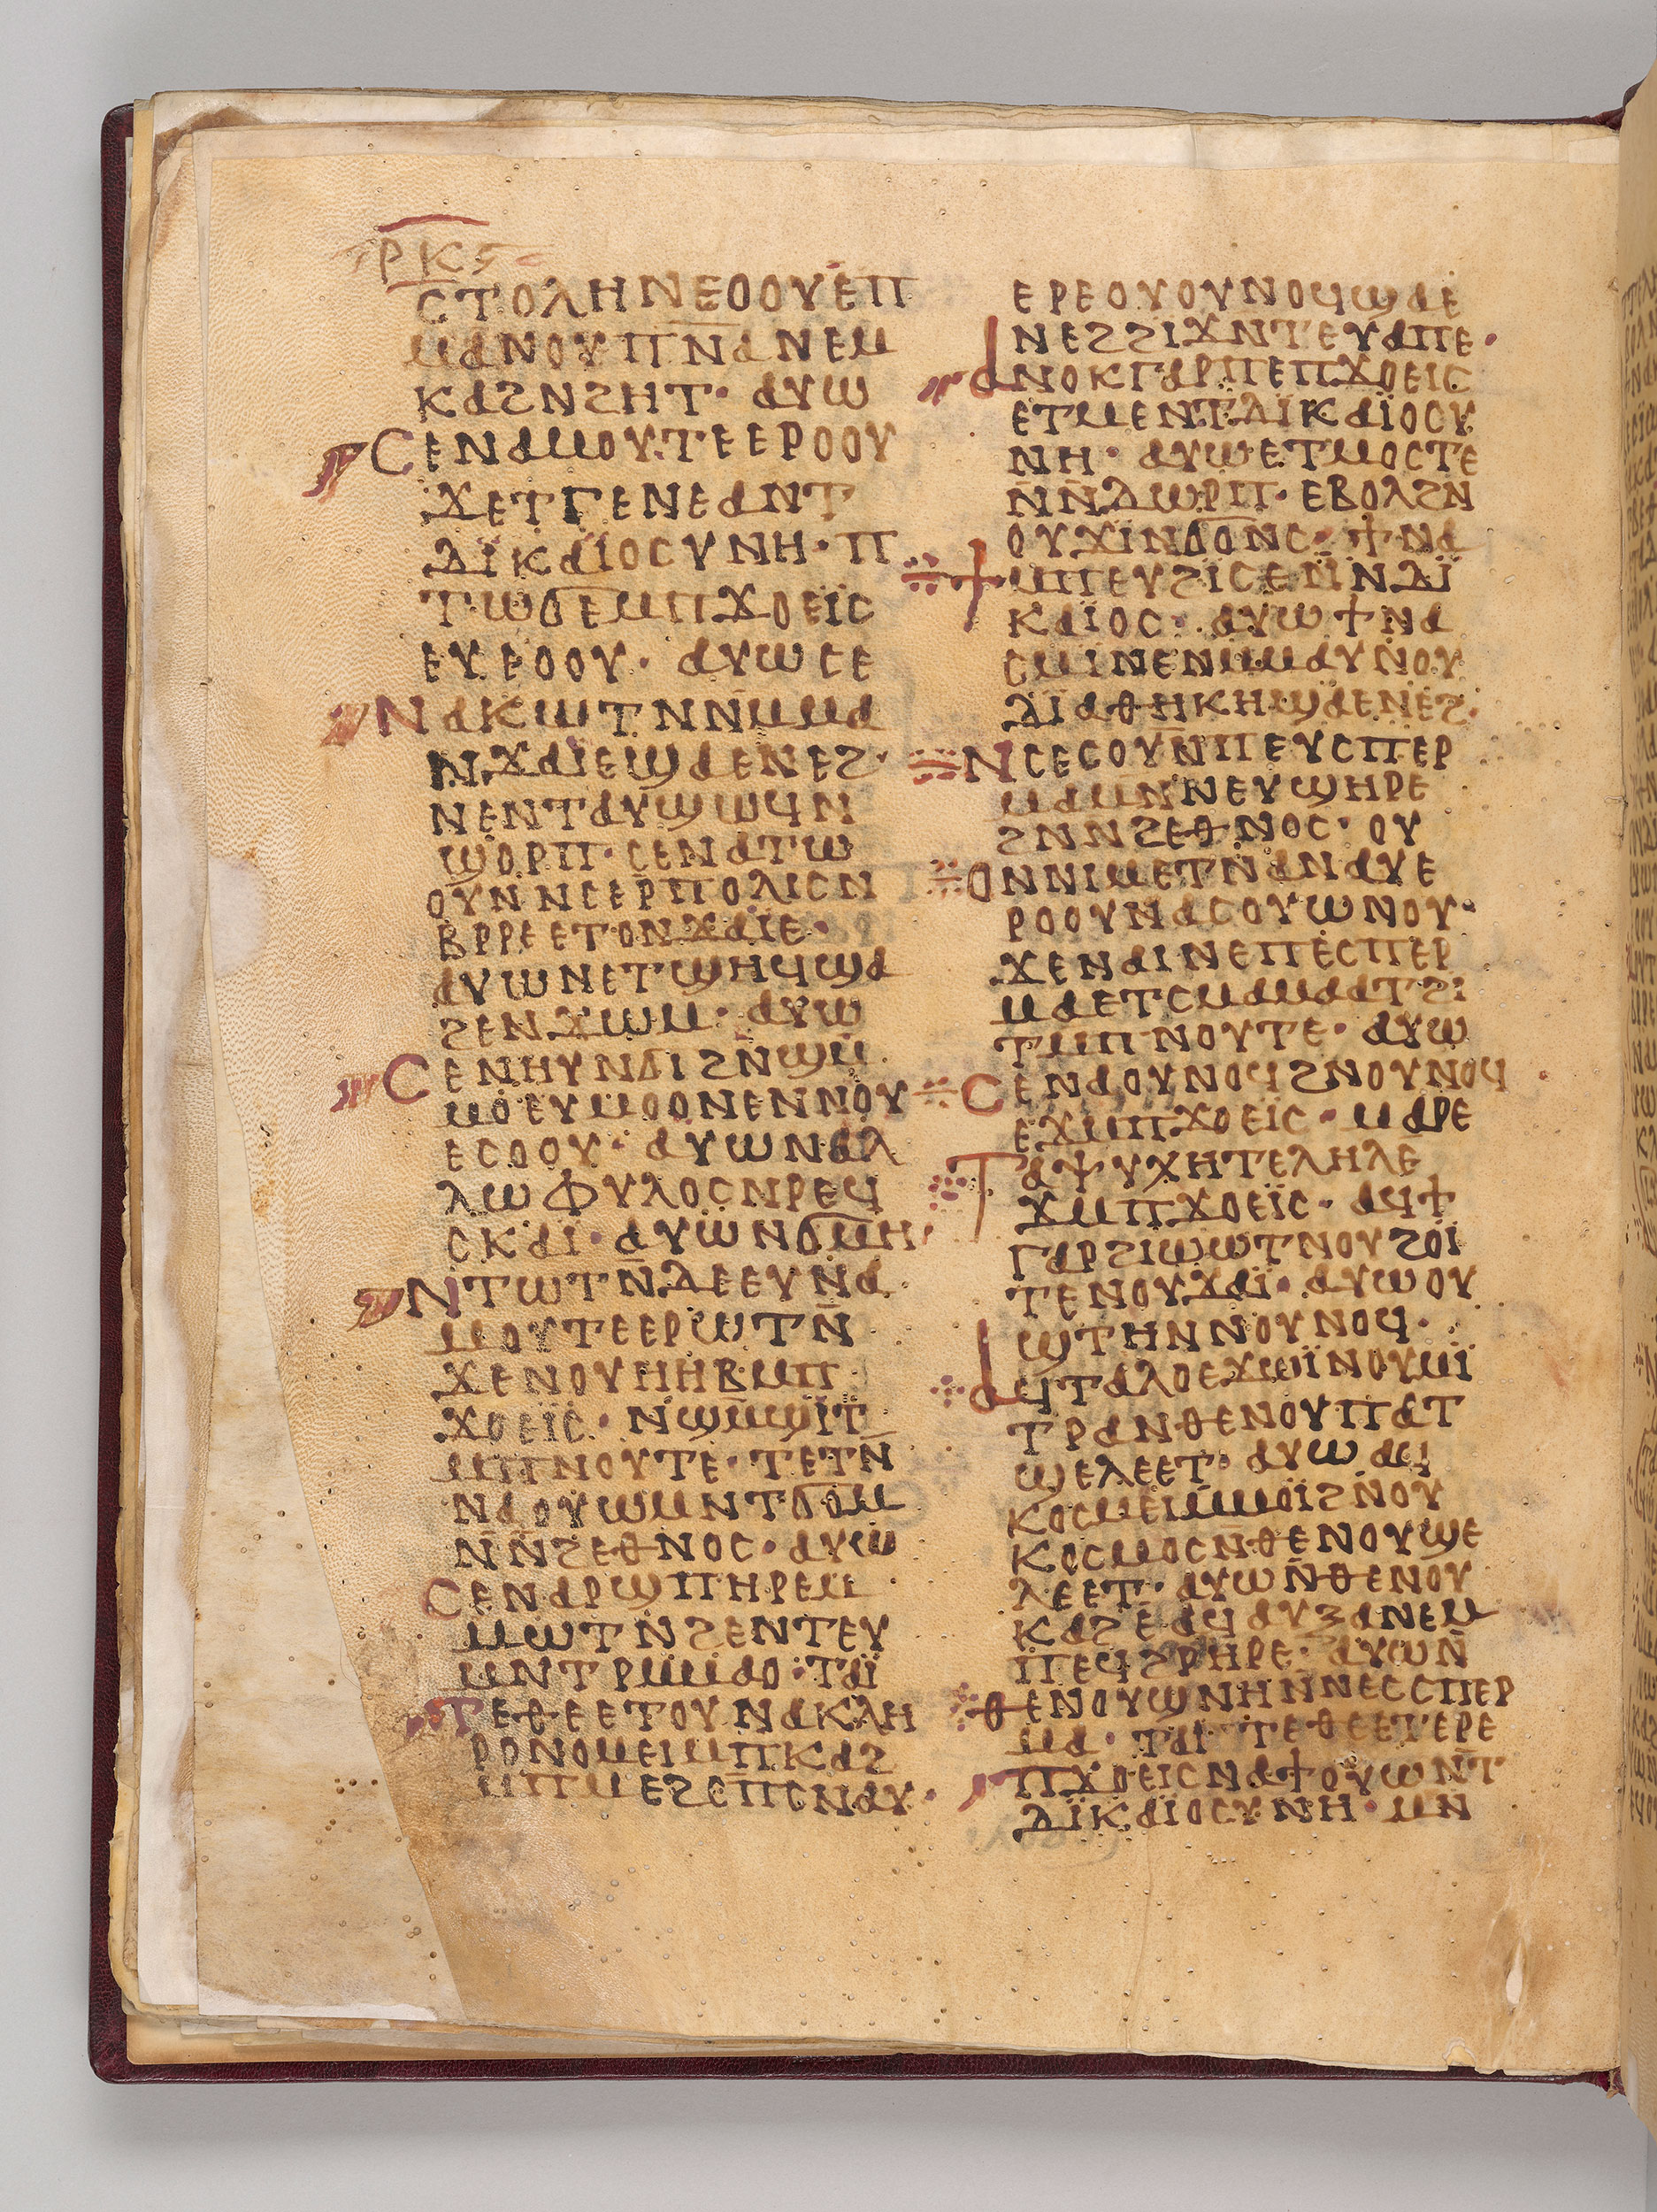 ⲣⲕⲋ
ⲥⲧⲟⲗⲏⲛⲉⲟⲟⲩⲉⲡ
ⲙⲁⲛⲟⲩⲡ̅ⲛ̅ⲁ̅ⲛⲉⲙ
ⲕⲁϩⲛϩⲏⲧ· ⲁⲩⲱ
ⲥⲉⲛⲁⲙⲟⲩⲧⲉⲉⲣⲟⲟⲩ
ϫⲉⲧⲅⲉⲛⲉⲁⲛⲧ
ⲇⲓⲕⲁⲓⲟⲥⲩⲛⲏ· ⲡ
ⲧⲱϭⲉⲙⲡϫⲟⲉⲓ̈ⲥ
ⲉⲩⲉⲟⲟⲩ· ⲁⲩⲱⲥⲉ
ⲛⲁⲕⲱⲧⲛⲛⲙⲙⲁ
ⲛϫⲁⲓ̈ⲉϣⲁⲉⲛⲉϩ·
ⲛⲉⲛⲧⲁⲩϣⲱϥⲛ
ϣⲟⲣⲡ· ⲥⲉⲛⲁⲧⲱ
ⲟⲩⲛⲛⲥⲉⲣⲡⲟⲗⲓⲥⲛ
ⲃⲣⲣⲉⲉⲧⲟⲛϫⲁⲓ̈ⲉ·
ⲁⲩⲱⲛⲉⲧϣⲏϥϣⲁ
ϩⲉⲛϫⲱⲙ· ⲁⲩⲱ
ⲥⲉⲛⲏⲩⲛϭⲓϩⲛ̅ϣⲙ̅
ⲙⲟⲉⲩⲙⲟⲟⲛⲉⲛⲛⲟⲩ
ⲉⲥⲟⲟⲩ· ⲁⲩⲱⲛⲁⲗ
ⲗⲱⲫⲩⲗⲟⲥⲛⲣⲉϥ
ⲥⲕⲁⲓ· ⲁⲩⲱⲛϭⲙⲏ
ⲛⲧⲱⲧⲛ̅ⲇⲉⲉⲩⲛⲁ
ⲙⲟⲩⲧⲉⲉⲣⲱⲧⲛ̅
ϫⲉⲛⲟⲩⲏⲏⲃⲙⲡ
ϫⲟⲉⲓ̈ⲥ· ⲛϣⲙϣⲓⲧ
ⲙⲡⲛⲟⲩⲧⲉ· ⲧⲉⲧⲛ̅
ⲛⲁⲟⲩⲱⲙⲛⲧϭⲟⲙ
ⲛ̅ⲛ̅ϩⲉⲑⲛⲟⲥ· ⲁⲩⲱ
ⲥⲉⲛⲁⲣϣⲡⲏⲣⲉⲙ
ⲙⲱⲧⲛϩⲉⲛⲧⲉⲩ
ⲙⲛⲧⲣⲙⲙⲁⲟ· ⲧⲁⲓ̈
ⲧⲉⲑⲉⲉⲧⲟⲩⲛⲁⲕⲗⲏ
ⲣⲟⲛⲟⲙⲉⲓⲙⲡⲕⲁϩ
ⲙⲡⲙⲉϩⲥⲉⲡⲥⲛⲁⲩ·
ⲉⲣⲉⲟⲩⲟⲩⲛⲟϥϣⲁⲉ
ⲛⲉϩϩⲓϫⲛⲧⲉⲩⲁⲡⲉ·
ⲁⲛⲟⲕⲅⲁⲣⲡⲉⲡϫⲟⲉⲓⲥ
ⲉⲧⲙⲉⲛⲧⲇⲓⲕⲁⲓ̈ⲟⲥⲩ
ⲛⲏ· ⲁⲩⲱⲉⲧⲙⲟⲥⲧⲉ
ⲛ̅ⲛ̅ⲇⲱⲣⲡ· ⲉⲃⲟⲗϩⲛ
ⲟⲩϫⲓⲛϭⲟⲛⲥ· ϯⲛⲁ
ϯⲙⲡⲉⲩϩⲓⲥⲉⲙ̅ⲛⲇⲓ̈
ⲕⲁⲓⲟⲥ· ⲁⲩⲱϯⲛⲁ
ⲥⲙⲓⲛⲉⲛⲙⲙⲁⲩⲛⲟⲩ
ⲇⲓⲁⲑⲏⲕⲏϣⲁⲉⲛⲉϩ·
ⲛⲥⲉⲥⲟⲩⲛⲡⲉⲩⲥⲡⲉⲣ
ⲙⲁⲙⲛⲛⲉⲩϣⲏⲣⲉ
ϩⲛⲛϩⲉⲑⲛⲟⲥ· ⲟⲩ
ⲟⲛⲛⲓⲙⲉⲧⲛⲁⲛⲁⲩⲉ
ⲣⲟⲟⲩⲛⲁⲥⲟⲩⲱⲛⲟⲩ·
ϫⲉⲛⲁⲓⲛⲉⲡⲉⲥⲡⲉⲣ
ⲙⲁⲉⲧⲥⲙⲁⲙⲁⲁⲧϩⲓ
ⲧⲙⲡⲛⲟⲩⲧⲉ· ⲁⲩⲱ
ⲥⲉⲛⲁⲟⲩⲛⲟϥϩⲛⲟⲩⲛⲟϥ
ⲉϫⲙⲡϫⲟⲉⲓ̈ⲥ· ⲙⲁⲣⲉ
ⲧⲁⲯⲩⲭⲏⲧⲉⲗⲏⲗⲉ
ϫⲙⲡϫⲟⲉⲓ̈ⲥ· ⲁϥϯ
ⲅⲁⲣϩⲓⲱⲱⲧⲛⲟⲩϩⲟⲓ̈
ⲧⲉⲛⲟⲩϫⲁⲓ̈· ⲁⲩⲱⲟⲩ
ϣⲧⲏⲛⲛⲟⲩⲛⲟϥ·
ⲁϥⲧⲁⲗⲟⲉϫⲱⲓ̈ⲛⲟⲩⲙⲓ̈
ⲧⲣⲁⲛⲑⲉⲛⲟⲩⲡⲁⲧ
ϣⲉⲗⲉⲉⲧ· ⲁⲩⲱⲁϥ
ⲕⲟⲥⲙⲉⲓⲙⲙⲟⲓ̈ϩⲛ̅ⲟⲩ
ⲕⲟⲥⲙⲟⲥⲛ̅ⲑⲉⲛⲟⲩϣⲉ
ⲗⲉⲉⲧ· ⲁⲩⲱⲛ̅ⲑⲉⲛⲟⲩ
ⲕⲁϩⲉⲁϥⲁⲩⲝⲁⲛⲉⲙ
ⲡⲉϥϩⲣⲏⲣⲉ· ⲁⲩⲱⲛ̅
ⲑⲉⲛⲟⲩϣⲛⲏⲛⲛⲉⲥⲥⲡⲉⲣ
ⲙⲁ· ⲧⲁⲓ ⲧⲉⲑⲉⲉⲧⲉⲣⲉ
ⲡϫⲟⲉⲓⲥⲛⲁϯⲟⲩⲱⲛⲧ
ⲇⲓ̈ⲕⲁⲓⲟⲥⲩⲛⲏ· ⲙⲛ